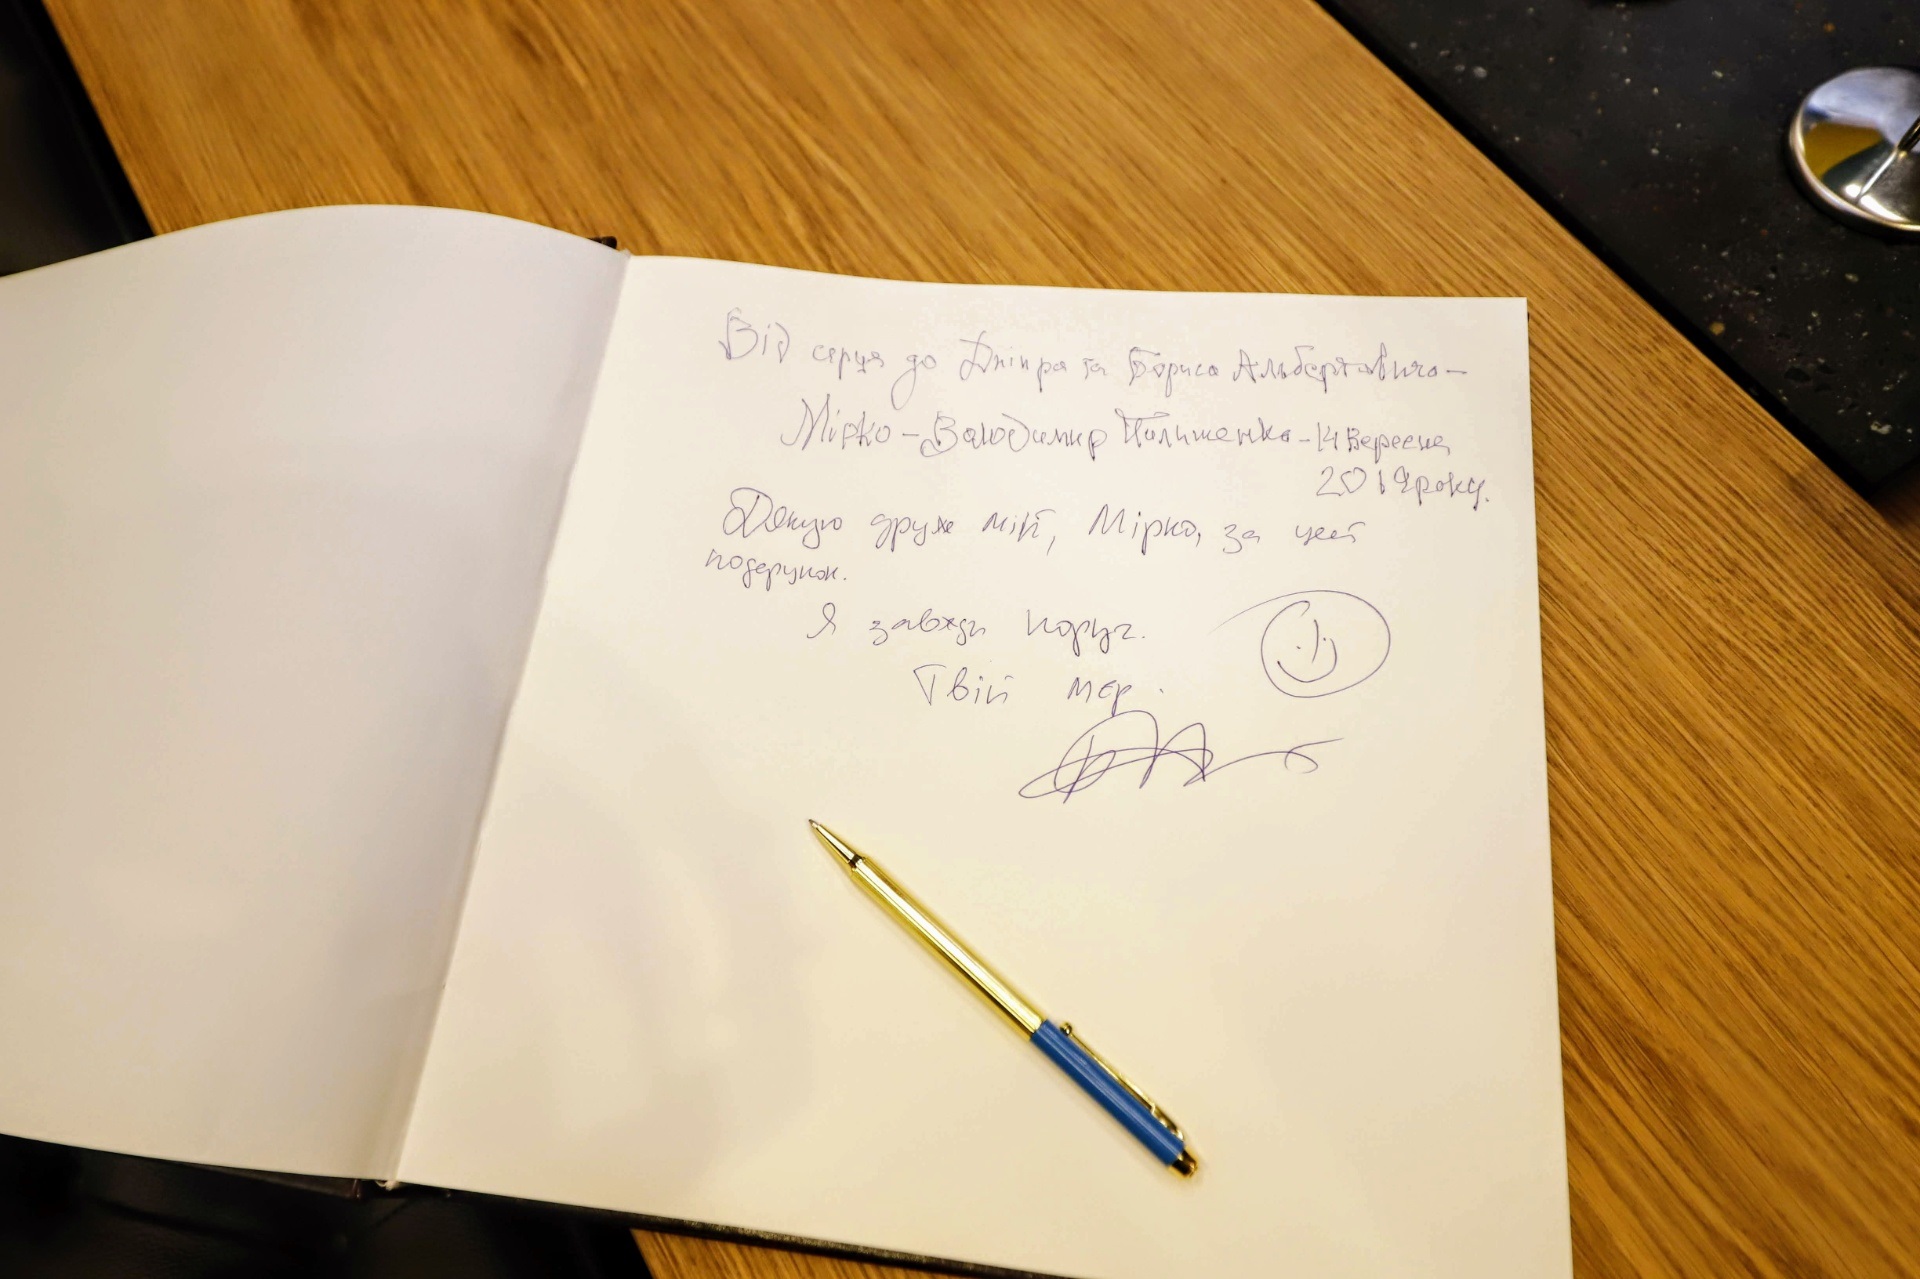 Від серця до Дніпра та Бориса Альбертовича-
Мірко-Володимир Пилишенко-14 Вересня
2019 року.
Дякую друже мій, Мірко, за цей
подарунок.
Я завжди поруч.
Твій мер.